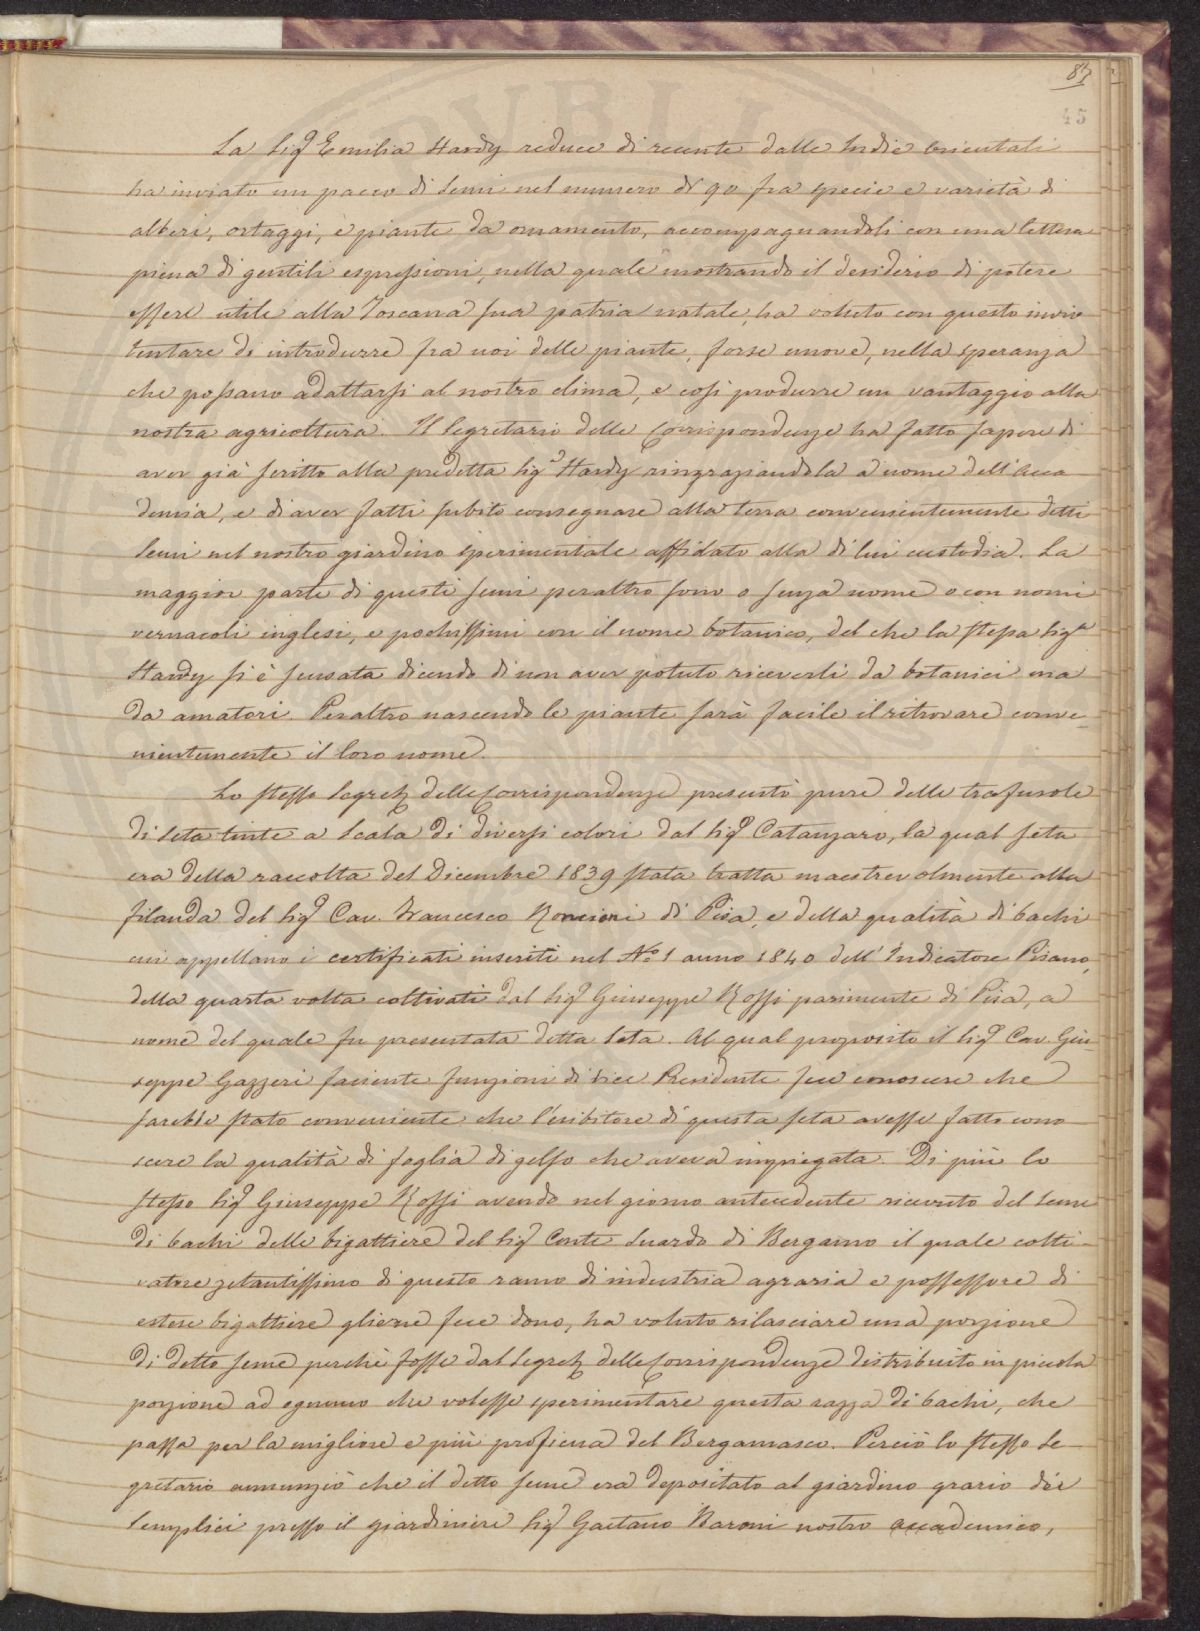 87
45
La Sig.ª Emilia Hardy reduce di recente dalle Indie Orientali
ha inviato un pacco di semi nel numero di 90 fra specie e varietà di
alberi, ortaggi, e piante da ornamento, accompagnandoli con una lettera
piena di gentili espressioni, nella quale mostrando il desiderio di potere
essere utile alla Toscana sua patria natale, ha voluto con questo invio
tentare di introdurre fra noi delle piante, forse nuove, nella speranza
che possano adattarsi al nostro clima, e così produrre un vantaggio alla
nostra agricoltura. Il Segretario delle Corrispondenze ha fatto sapere di
aver già scritto alla predetta Sig.ª Hardy ringraziandola a nome dell'Acca
demia, e di aver fatti subito consegnare alla terra convenientemente detti
semi nel nostro giardino sperimentale affidato alla di lui custodia. La
maggior parte di questi semi peraltro sono o senza nome o con nomi
vernacoli inglesi, e pochissimi con il nome botanico, del che la stessa Sig.ª
Hardy si è scusata dicendo di non aver potuto riceverli da botanici ma
da amatori. Peraltro nascendo le piante sarà facile il ritrovare conve=
nientemente il loro nome.
Lo stesso Segret. delle Corrispondenze presentò pure delle trafusole
di seta tinte a scala di diversi colori dal Sig. Catanzaro, la qual seta
era della raccolta del Dicembre 1839 stata tratta maestrevolmente alla
filanda del Sig. Cav. Francesco Roncioni di Pisa, e della qualità di bachi
cui appellano i certificati inseriti nel N.º 1 anno 1840 dell'Indicatore Pisano,
della quarta volta coltivati dal Sig. Giuseppe Rossi parimente di Pisa, a
nome del quale fu presentata detta seta. Al qual proposito il Sig. Cav. Giu
seppe Gazzeri faciente funzioni di Vice Presidente fece conoscere che
sarebbe stato conveniente che l'esibitore di questa seta avesse fatto cono
scere la qualità di foglia di gelso che aveva impiegata. Di più lo
stesso Sig. Giuseppe Rossi avendo nel giorno antecedente ricevuto del seme
di bachi delle bigattiere del Sig. Conte Suardo di Bergamo il quale colti-
vatore zelantissimo di questo ramo di industria agraria e possessore di
estese bigattiere gliene fece dono, ha voluto rilasciare una porzione
di detto seme perchè fosse dal Segret. delle Corrispondenze distribuito in piccola
porzione ad ognuno che volesse sperimentare questa razza di bachi, che
passa per la migliore e più proficua del Bergamasco. Perciò lo stesso Se-
gretario annunziò che il detto seme era depositato al giardino grario dei
Semplici presso il giardiniere Sig. Gaetano Baroni nostro accademico,